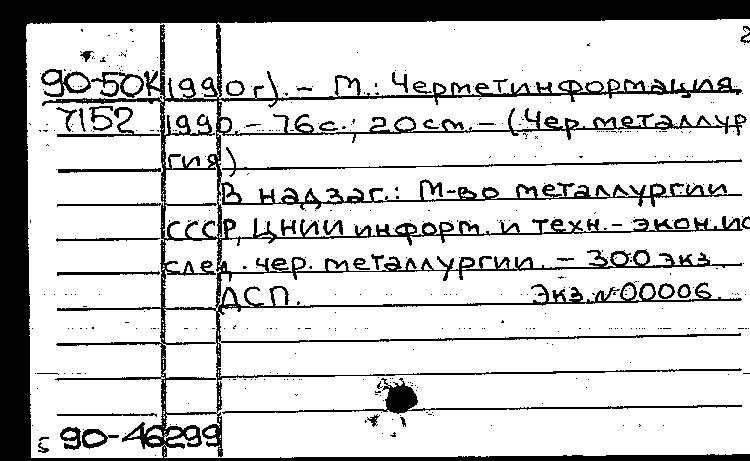 2
90-50К 1990г). - М.: Черметинформация,
7152 1990 - 76с.; 20см. - (Чер.металлур
гия)
В надзаг.: М-во металлургии
СССР, ЦНИИ информ. и техн.-экон.ис
след. чер. металлургии. - 300 экз
ДСП. Экз.№00006.
5 90-46299